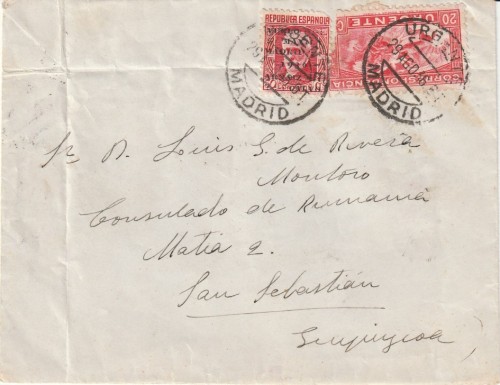 REPUBLICA ESPAÑOLA
20 URGENTE
CORRESPONDENCIA
MADRID
MADRID
Sr. D. Luis G. de Rivera
Montoro
Consulado de Rumania
Matia 2.
San Sebastián
Guipuzcoa